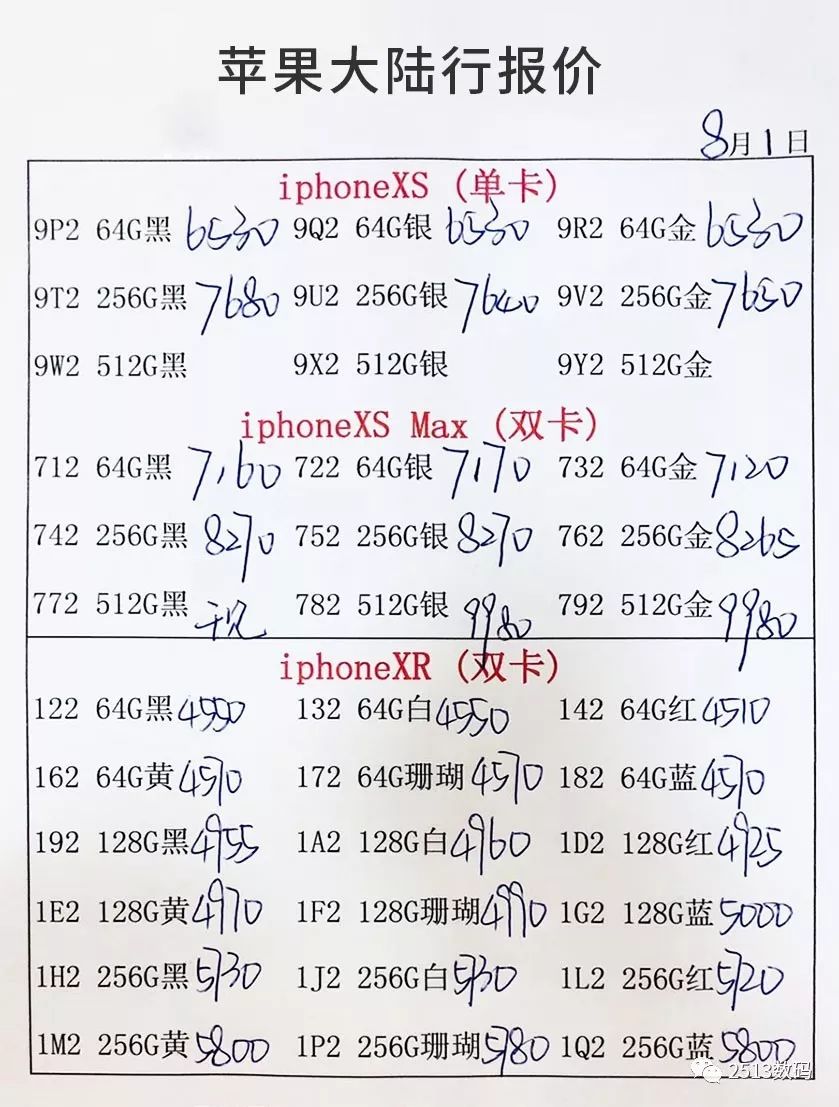 苹果大陆行报价
8月1日
iphoneXS (单卡)
9P2 64G黑 6530 9Q2 64G银 6530 9R2 64G金 6530
9T2 256G黑 7680 9U2 256G银 7640 9V2 256G金 7650
9W2 512G黑 9X2 512G银 9Y2 512G金
iphoneXS Max (双卡)
712 64G黑 7160 722 64G银 7170 732 64G金 7120
742 256G黑 8270 752 256G银 8270 762 256G金 8265
772 512G黑 782 512G银 9980 792 512G金 9980
iphoneXR (双卡)
122 64G黑 4550 132 64G白 4550 142 64G红 4510
162 64G黄 4570 172 64G珊瑚 4570 182 64G蓝 4570
192 128G黑 4955 1A2 128G白 4960 1D2 128G红 4925
1E2 128G黄 4970 1F2 128G珊瑚 4990 1G2 128G蓝 5000
1H2 256G黑 5730 1J2 256G白 5730 1L2 256G红 5720
1M2 256G黄 5800 1P2 256G珊瑚 5780 1Q2 256G蓝 5800
2513数码